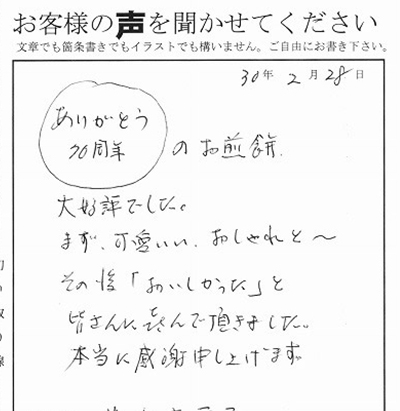 お客様の声を聞かせてください
文章でも箇条書きでもイラストでも構いません。ご自由にお書き下さい。
30年 2月 28日
ありがとう
70周年
のお煎餅.
大好評でした。
まず、可愛いい、おしゃれと〜
その後「おいしかった」と
皆さんに喜んで頂きました。
本当に感謝申し上げます